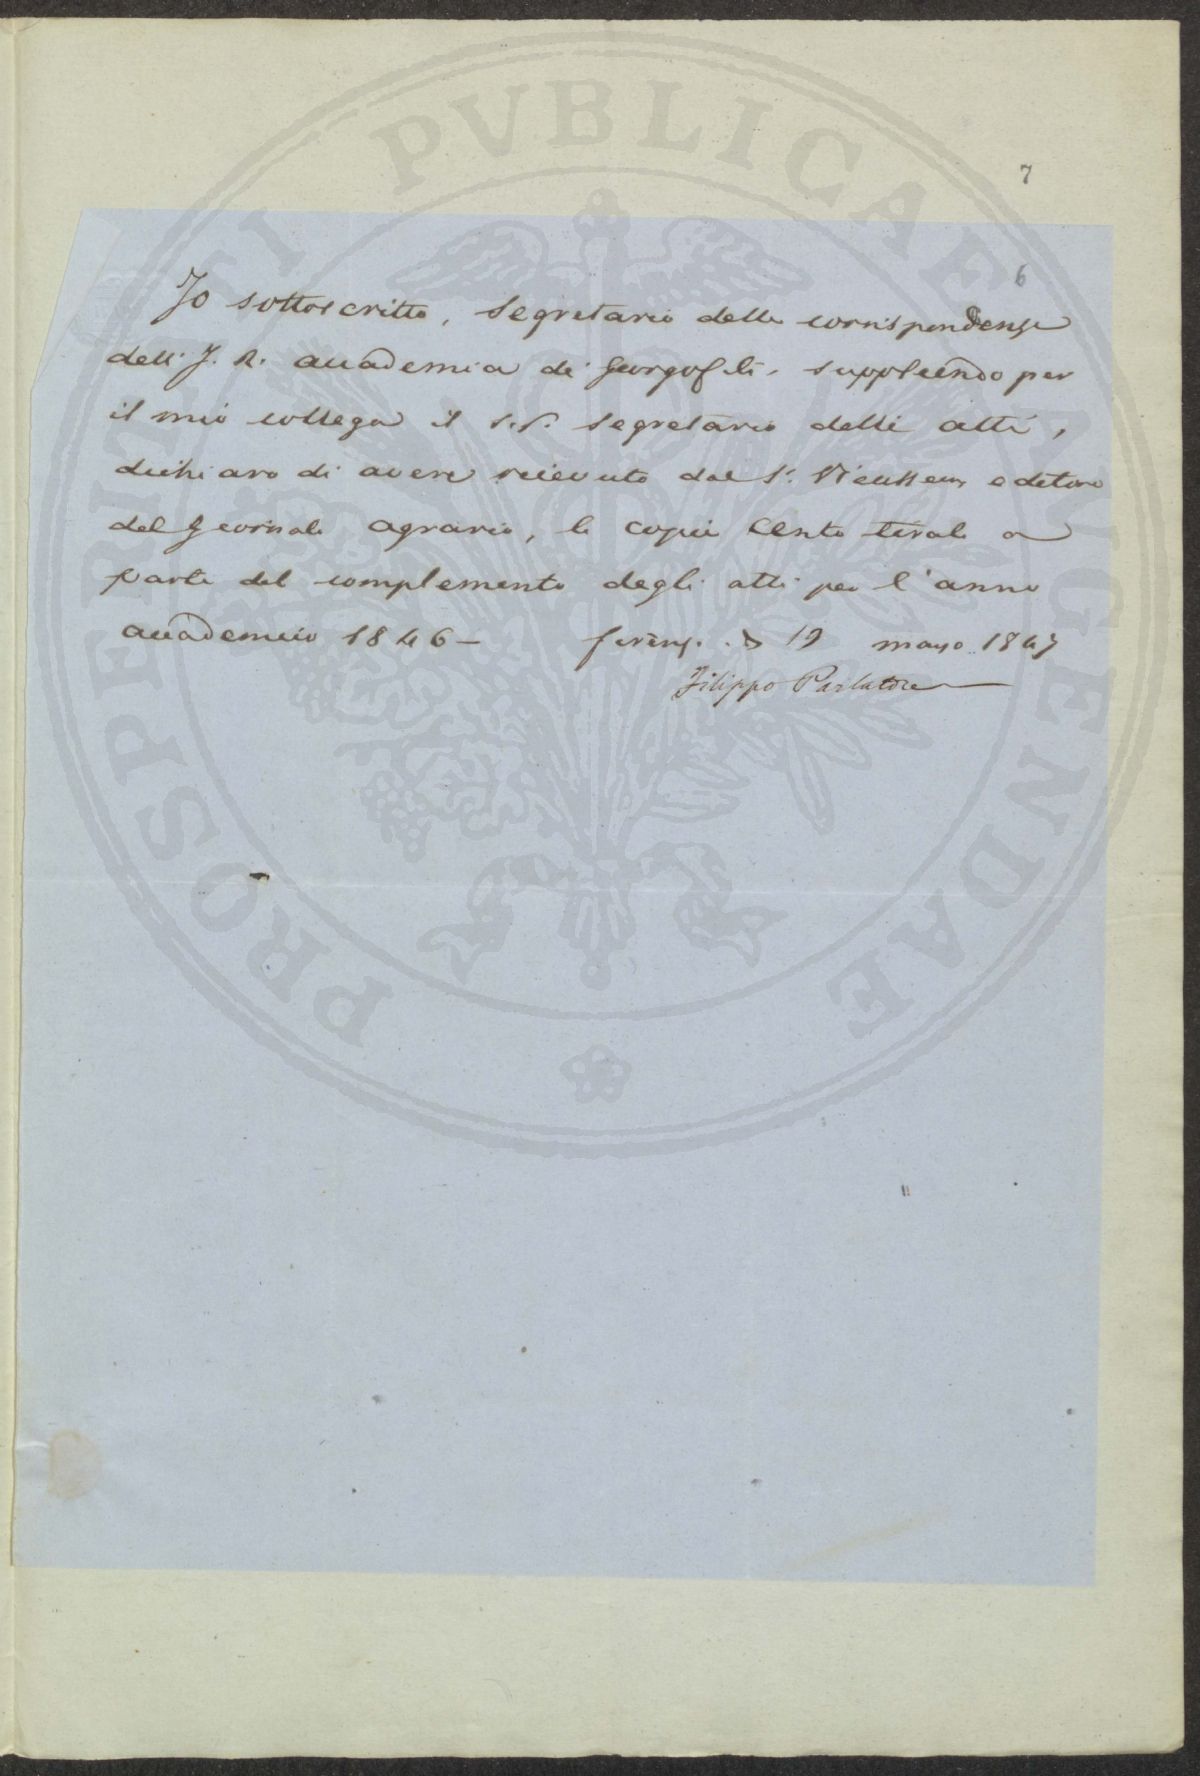 7
6
Io sottoscritto, segretario delle corrispondenze
dell'I. R. accademia di georgofili, supplendo per
il mio collega il s.r. segretario delli atti,
dichiaro di avere ricevuto dal S. Vieusseux editore
del giornale agrario, le copie cento tirate a
parte del complemento degli atti per l'anno
accademico 1846 –
firenze 19 marzo 1847
Filippo Parlatore
PROSPERITATI PVBLICAE AVGENDAE